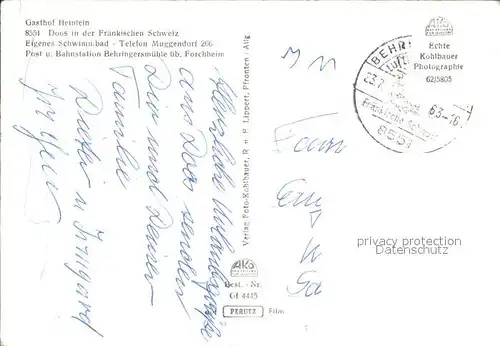 Gasthof Heinlein
8551 Doos in der Fränkischen Schweiz
Eigenes Schwimm.bad - Telefon Muggendorf 266
Post u. Bahnstation Behringersmühle üb. Forchheim
AKO
Echte
Kohlbauer
Photographie
62/5805
BEHR
Luft
23.7. 63-16
Fränkische Schweiz
8551
Herzliche Urlaubsgrüße
aus Doos senden
Dir und Deiner
Familie
Dieter u Irmgard
Verlag Foto-Kohlbauer, R. u. P. Lippert, Pfronten / Allg
Fam
privacy protection
Datenschutz
AKO
Best. - Nr.
Gf 4445
PERUTZ Film